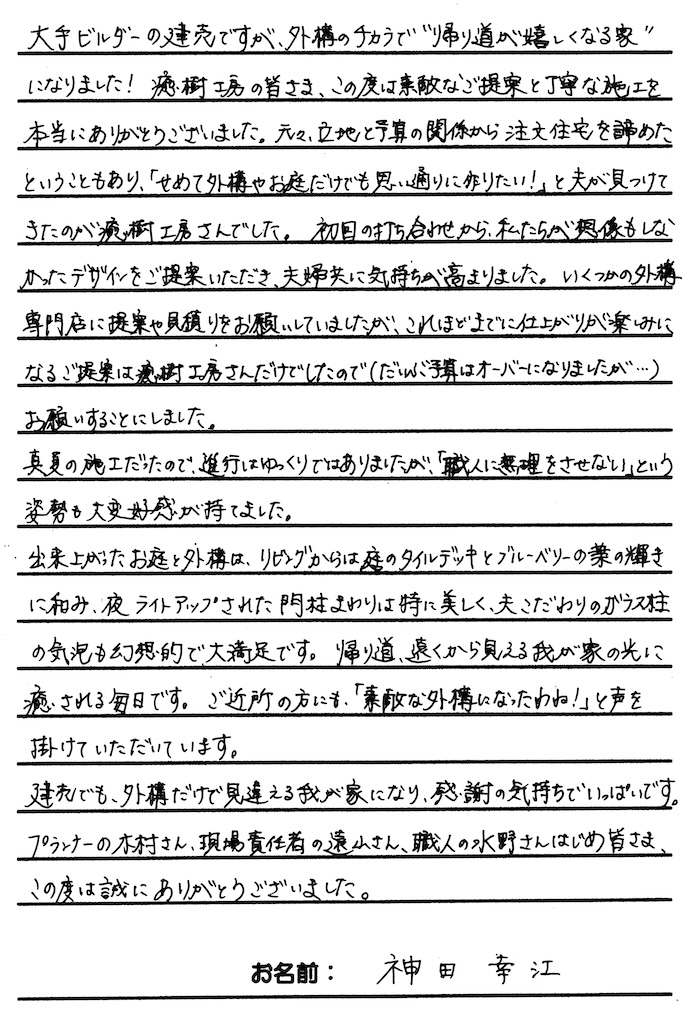 大手ビルダーの建売ですが、外構のチカラで"帰り道が嬉しくなる家"
になりました！ 癒樹工房の皆さま、この度は素敵なご提案と丁寧な施工を
本当にありがとうございました。元々、立地と予算の関係から注文住宅を諦めた
ということもあり、「せめて外構やお庭だけでも思い通りに作りたい！」と夫が見つけて
きたのが癒樹工房さんでした。 初回の打ち合わせから、私たちが想像もしな
かったデザインをご提案いただき、夫婦共に気持ちが高まりました。いくつかの外構
専門店に提案や見積りをお願いしていましたが、これほどまでに仕上がりが楽しみに
なるご提案は癒樹工房さんだけでしたので（だいぶ予算はオーバーになりましたが…）
お願いすることにしました。
真夏の施工だったので、進行はゆっくりではありましたが、「職人に無理をさせない」という
姿勢も大変好感が持てました。
出来上がったお庭と外構は、リビングからは庭のタイルデッキとブルーベリーの葉の輝き
に和み、夜ライトアップされた門柱まわりは特に美しく、夫こだわりのガラス柱
の気泡も幻想的で大満足です。帰り道、遠くから見える我が家の光に
癒される毎日です。ご近所の方にも、「素敵な外構になったわね！」と声を
掛けていただいています。
建売でも、外構だけで見違える我が家になり、感謝の気持ちでいっぱいです。
プランナーの木村さん、現場責任者の遠山さん、職人の水野さんはじめ皆さま、
この度は誠にありがとうございました。
お名前： 神田 幸江